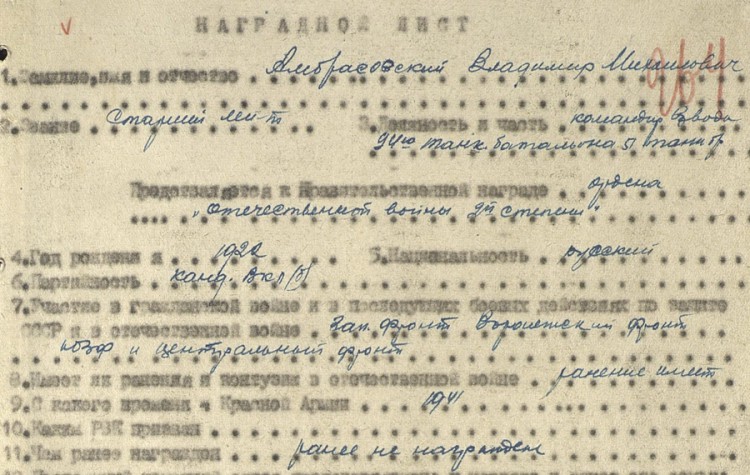 НАГРАДНОЙ ЛИСТ
1. Фамилие, имя и отчество Амбрасовский Владимир Михайлович
2. Звание Старший лей-т 3. Должность и часть командир взвода
танк. батальона танк
Представляется к Правительственной награде ордена
"Отечественной войны 2й степени"
4. Год рождения 1922 5. Национальность русский
6. Партийность канд. ВКП(б)
7. Участие в гражданской войне и в последующих боевых действиях по защите
СССР и в отечественной войне Зап. фронт Воронежский фронт
ЮЗФ и центральный фронт
8. Имеет ли ранения и контузии в отечественной войне ранение имеет
9. С какого времени в Красной Армии 1941
10. Каким РВК призван
11. Чем ранее награжден ранее не награжден